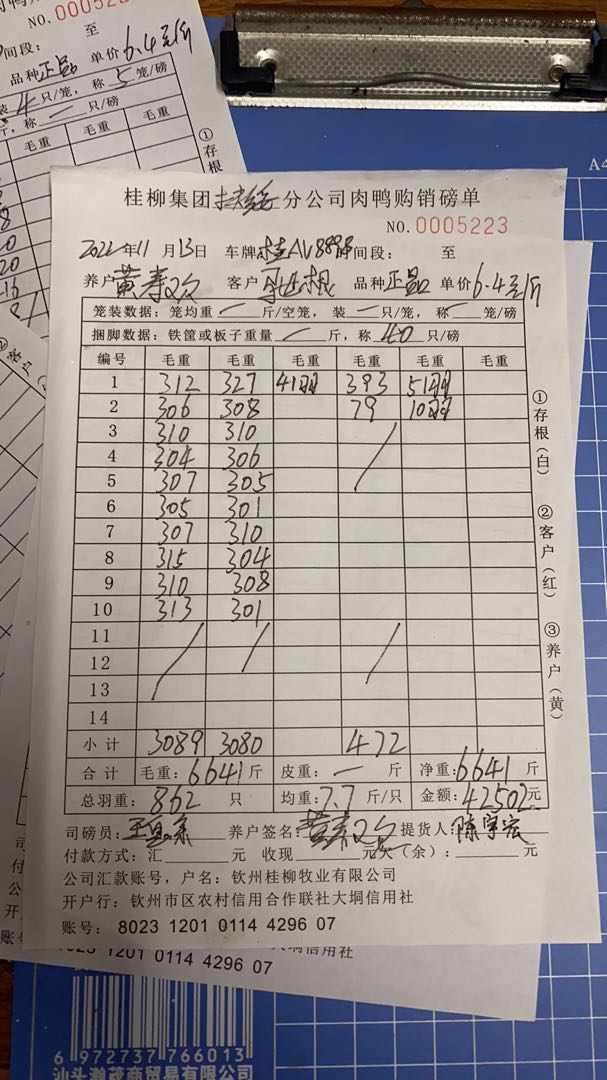 NO.0000521
间段： 至
品种正品 单价6.4元/斤
装4只/笼，称5笼/磅
斤，称一只/磅
毛重 毛重 毛重
①存根
桂柳集团 分公司肉鸭购销磅单
NO.0005223
2022年11月13日 车牌桂AV889 时间段： 至
养户黄寿 客户 根 品种正品 单价6.4元/斤
笼装数据：笼均重一斤/空笼，装一只/笼，称一笼/磅
捆脚数据：铁筐或板子重量一斤，称40只/磅
编号 毛重 毛重 毛重 毛重 毛重 毛重
1 312 327 41羽 393 51羽
2 306 308 79 10羽
3 310 310
4 304 306
5 307 305
6 305 301
7 307 310
8 315 304
9 310 308
10 313 301
11
12
13
14
小计 3089 3080 472
合计 毛重：6641斤 皮重：一斤 净重：6641斤
总羽重：862只 均重：7.7斤/只 金额：42502元
司磅员： 养户签名：黄寿 提货人：陈宇宏
付款方式：汇 元 收现 元欠（余）： 元
公司汇款账号，户名：钦州桂柳牧业有限公司
开户行：钦州市区农村信用合作联社大垌信用社
账号：8023 1201 0114 4296 07
①存根（白）
②客户（红）
③养户（黄）
大垌信用社
8023 1201 0114 4296 07
A4
6 972737 766013
汕头瀚茂商贸易有限